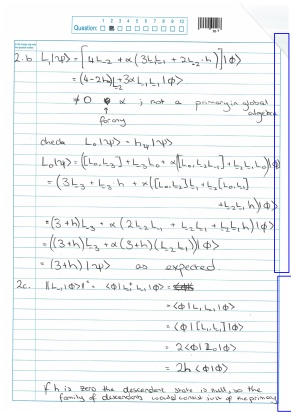 Question: 1 2 3 4 5 6 7 8 9 10
2.b L₁|ψ> = [4L₋₂ + α(3L₋₁L₋₁ + 2L₋₂·h)]|φ>
= (4-2h)L₋₂+3α L₋₁L₋₁|φ>
≠0 for any α ; not a primary in global algebra
check L₀|ψ> = hψ|ψ>
L₀|ψ> = ([L₀,L₋₃] + L₋₃L₀ + α([L₀,L₋₂L₋₁] + L₋₂L₋₁L₀)|φ>
= (3L₋₃ + L₋₃·h + α([L₀,L₋₂]L₋₁ + L₋₂[L₀,L₋₁]
+ L₋₂L₋₁h)|φ>
= (3+h)L₋₃ + α(2L₋₂L₋₁ + L₋₂L₋₁ + L₋₂L₋₁h)|φ>
= ((3+h)L₋₃ + α(3+h)(L₋₂L₋₁))|φ>
= (3+h)|ψ> as expected.
2c. ||L₋₁|φ>||² = <φ|L₋₁⁺L₋₁|φ> =
= <φ|L₁L₋₁|φ>
= <φ|[L₁,L₋₁]|φ>
= 2<φ|L₀|φ>
= 2h<φ|φ>
If h is zero the descendant state is null, so the
family of descendants would consist just of the primary